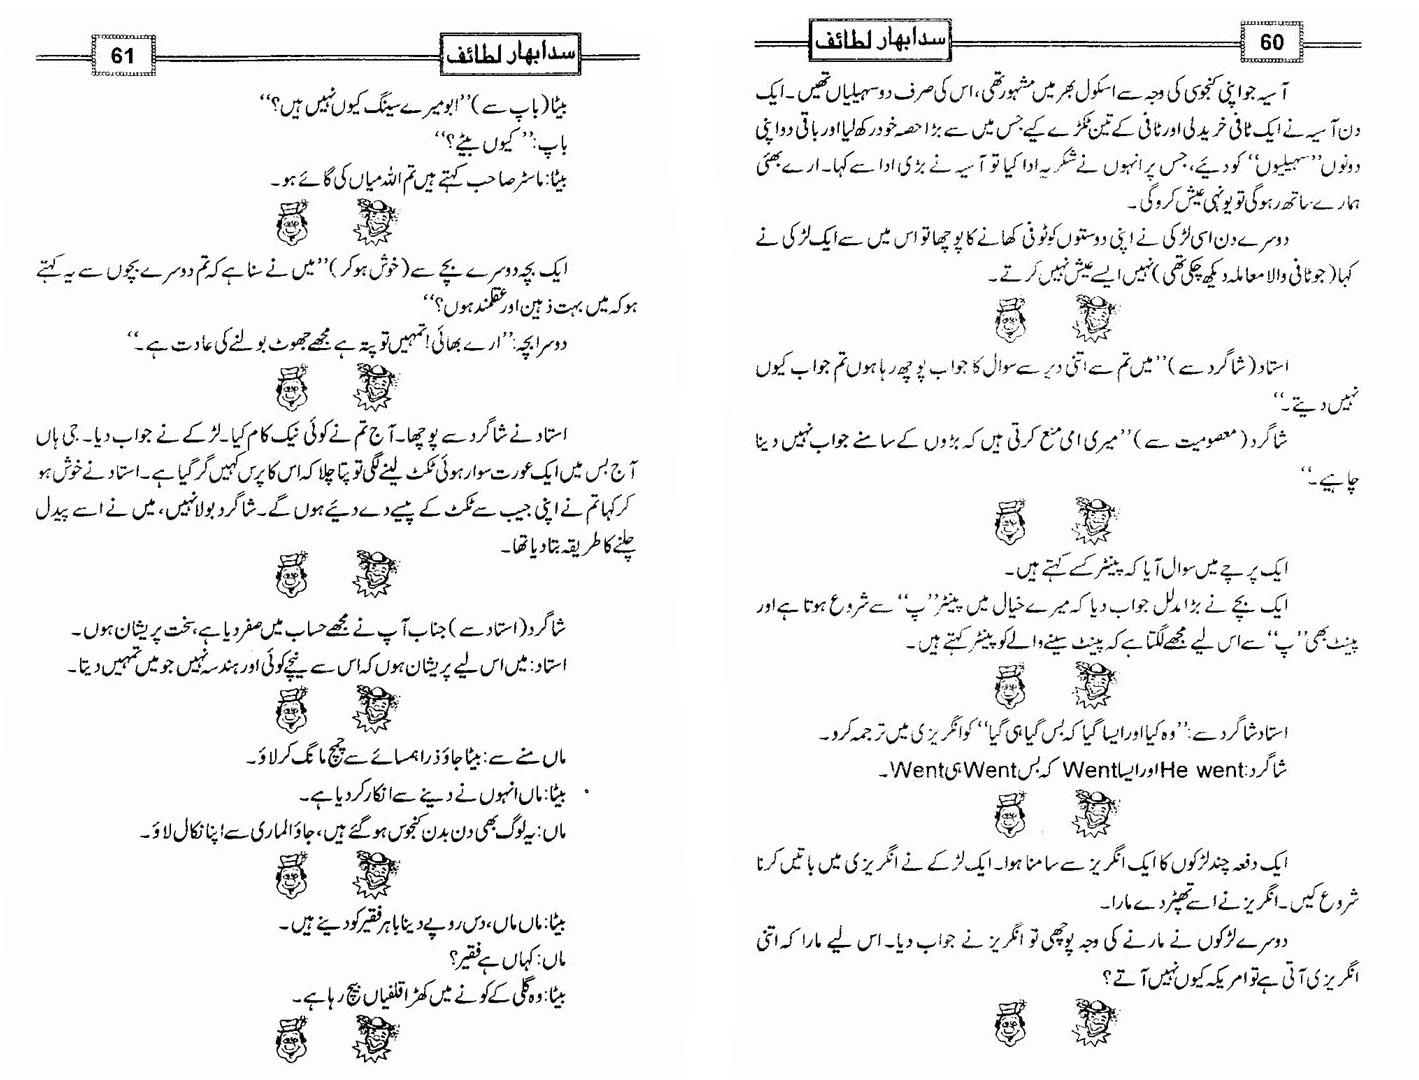 60
سدابہار لطائف
آسیہ جو اپنی کنجوسی کی وجہ سے اسکول بھر میں مشہور تھی، اس کی صرف دو سہیلیاں تھیں۔ ایک
دن آسیہ نے ایک ٹافی خرید لی اور ٹافی کے تین ٹکڑے کیے جس میں سے بڑا حصہ خود رکھ لیا اور باقی دو اپنی
دونوں ’’سہیلیوں‘‘ کو دیئے، جس پر انہوں نے شکریہ ادا کیا تو آسیہ نے بڑی ادا سے کہا۔ ارے بھئی
ہمارے ساتھ رہو گی تو یونہی عیش کرو گی۔
دوسرے دن اسی لڑکی نے اپنی دوستوں کو ٹوفی کھانے کا پوچھا تو اس میں سے ایک لڑکی نے
کہا (جو ٹافی والا معاملہ دیکھ چکی تھی) نہیں ایسے عیش نہیں کرتے۔
استاد (شاگرد سے) ’’میں تم سے اتنی دیر سے سوال کا جواب پوچھ رہا ہوں تم جواب کیوں
نہیں دیتے۔‘‘
شاگرد (معصومیت سے) ’’میری امی منع کرتی ہیں کہ بڑوں کے سامنے جواب نہیں دینا
چاہیے۔‘‘
ایک پرچے میں سوال آیا کہ پینٹر کسے کہتے ہیں۔
ایک بچے نے بڑا مدلل جواب دیا کہ میرے خیال میں پینٹر ’’پ‘‘ سے شروع ہوتا ہے اور
پینٹ بھی ’’پ‘‘ سے اس لیے مجھے لگتا ہے کہ پینٹ سینے والے کو پینٹر کہتے ہیں۔
استاد شاگرد سے: ’’وہ کیا اور ایسا گیا کہ بس گیا ہی گیا‘‘ کو انگریزی میں ترجمہ کرو۔
شاگرد: He went اور ایسا Went کہ بس Went ہی Went۔
ایک دفعہ چند لڑکوں کا ایک انگریز سے سامنا ہوا۔ ایک لڑکے نے انگریزی میں باتیں کرنا
شروع کیں۔ انگریز نے اسے تھپڑ دے مارا۔
دوسرے لڑکوں نے مارنے کی وجہ پوچھی تو انگریز نے جواب دیا۔ اس لیے مارا کہ اتنی
انگریزی آتی ہے تو امریکہ کیوں نہیں آتے؟
سدابہار لطائف
61
بیٹا (باپ سے) ’’ابو میرے سینگ کیوں نہیں ہیں؟‘‘
باپ: ’’کیوں بیٹے؟‘‘
بیٹا: ماسٹر صاحب کہتے ہیں تم اللہ میاں کی گائے ہو۔
ایک بچہ دوسرے بچے سے (خوش ہو کر) ’’میں نے سنا ہے کہ تم دوسرے بچوں سے یہ کہتے
ہو کہ میں بہت ذہین اور عقلمند ہوں؟‘‘
دوسرا بچہ: ’’ارے بھائی! تمہیں تو پتہ ہے مجھے جھوٹ بولنے کی عادت ہے۔‘‘
استاد نے شاگرد سے پوچھا۔ آج تم نے کوئی نیک کام کیا۔ لڑکے نے جواب دیا۔ جی ہاں
آج بس میں ایک عورت سوار ہوئی ٹکٹ لینے لگی تو پتا چلا کہ اس کا پرس کہیں گر گیا ہے۔ استاد نے خوش ہو
کر کہا تم نے اپنی جیب سے ٹکٹ کے پیسے دے دیئے ہوں گے۔ شاگرد بولا نہیں، میں نے اسے پیدل
چلنے کا طریقہ بتا دیا تھا۔
شاگرد (استاد سے) جناب آپ نے مجھے حساب میں صفر دیا ہے، سخت پریشان ہوں۔
استاد: میں اس لیے پریشان ہوں کہ اس سے نیچے کوئی اور ہندسہ نہیں جو میں تمہیں دیتا۔
ماں منے سے: بیٹا جاؤ ذرا ہمسائے سے چمچ مانگ کر لاؤ۔
بیٹا: ماں انہوں نے دینے سے انکار کر دیا ہے۔
ماں: یہ لوگ بھی دن بدن کنجوس ہو گئے ہیں، جاؤ الماری سے اپنا نکال لاؤ۔
بیٹا: ماں ماں، دس روپے دینا باہر فقیر کو دینے ہیں۔
ماں: کہاں ہے فقیر؟
بیٹا: وہ گلی کے کونے میں کھڑا قلفیاں بیچ رہا ہے۔